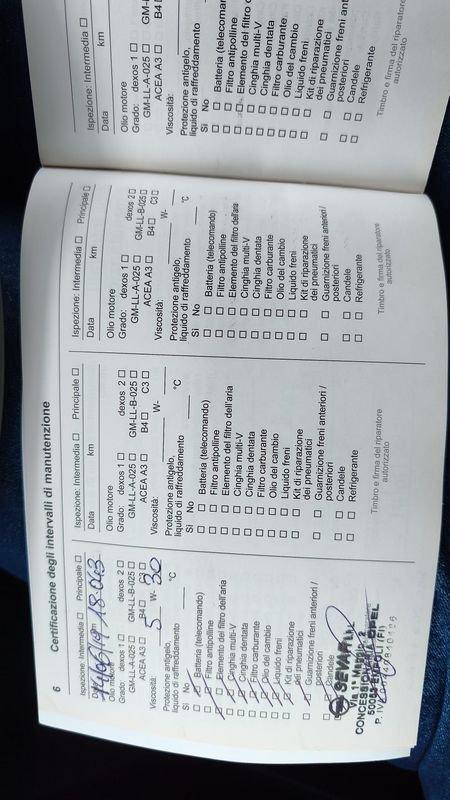 6 Certificazione degli intervalli di manutenzione
Ispezione: Intermedia □ Principale □
18.013
Grado: dexos 1 □ dexos 2 □
GM-LL-A-025 □ GM-LL-B-025 □
ACEA A3 □ B4 □ C3 □
Viscosità: 5 W- 30
Protezione antigelo,
liquido di raffreddamento °C
Sì No
□ □ Batteria (telecomando)
□ □ Filtro antipolline
□ □ Elemento del filtro dell'aria
□ □ Cinghia multi-V
□ □ Cinghia dentata
□ □ Filtro carburante
□ □ Olio del cambio
□ □ Liquido freni
□ □ Kit di riparazione
dei pneumatici
□ □ Guarnizione freni anteriori /
posteriori
□ □ Candele
SEVAR
CONCESSIONARIA OPEL
Ispezione: Intermedia □ Principale □
Data km
Olio motore
Grado: dexos 1 □ dexos 2 □
GM-LL-A-025 □ GM-LL-B-025 □
ACEA A3 □ B4 □ C3 □
Viscosità: W-
Protezione antigelo,
liquido di raffreddamento °C
Sì No
□ □ Batteria (telecomando)
□ □ Filtro antipolline
□ □ Elemento del filtro dell'aria
□ □ Cinghia multi-V
□ □ Cinghia dentata
□ □ Filtro carburante
□ □ Olio del cambio
□ □ Liquido freni
□ □ Kit di riparazione
dei pneumatici
□ □ Guarnizione freni anteriori /
posteriori
□ □ Candele
□ □ Refrigerante
Timbro e firma del riparatore
autorizzato
Ispezione: Intermedia □ Principale □
Data km
Olio motore
Grado: dexos 1 □ dexos 2 □
GM-LL-A-025 □ GM-LL-B-025 □
ACEA A3 □ B4 □ C3 □
Viscosità: W-
Protezione antigelo,
liquido di raffreddamento °C
Sì No
□ □ Batteria (telecomando)
□ □ Filtro antipolline
□ □ Elemento del filtro dell'aria
□ □ Cinghia multi-V
□ □ Cinghia dentata
□ □ Filtro carburante
□ □ Olio del cambio
□ □ Liquido freni
□ □ Kit di riparazione
dei pneumatici
□ □ Guarnizione freni anteriori /
posteriori
□ □ Candele
□ □ Refrigerante
Timbro e firma del riparatore
autorizzato
Ispezione: Intermedia □
Data km
Olio motore
Grado: dexos 1 □
GM-LL-A-025 □
ACEA A3 □
Viscosità:
Protezione antigelo,
liquido di raffreddamento
Sì No
□ □ Batteria (telecomando)
□ □ Filtro antipolline
□ □ Elemento del filtro
□ □ Cinghia multi-V
□ □ Cinghia dentata
□ □ Filtro carburante
□ □ Olio del cambio
□ □ Liquido freni
□ □ Kit di riparazione
dei pneumatici
□ □ Guarnizione freni
posteriori
□ □ Candele
□ □ Refrigerante
Timbro e firma del riparatore
autorizzato